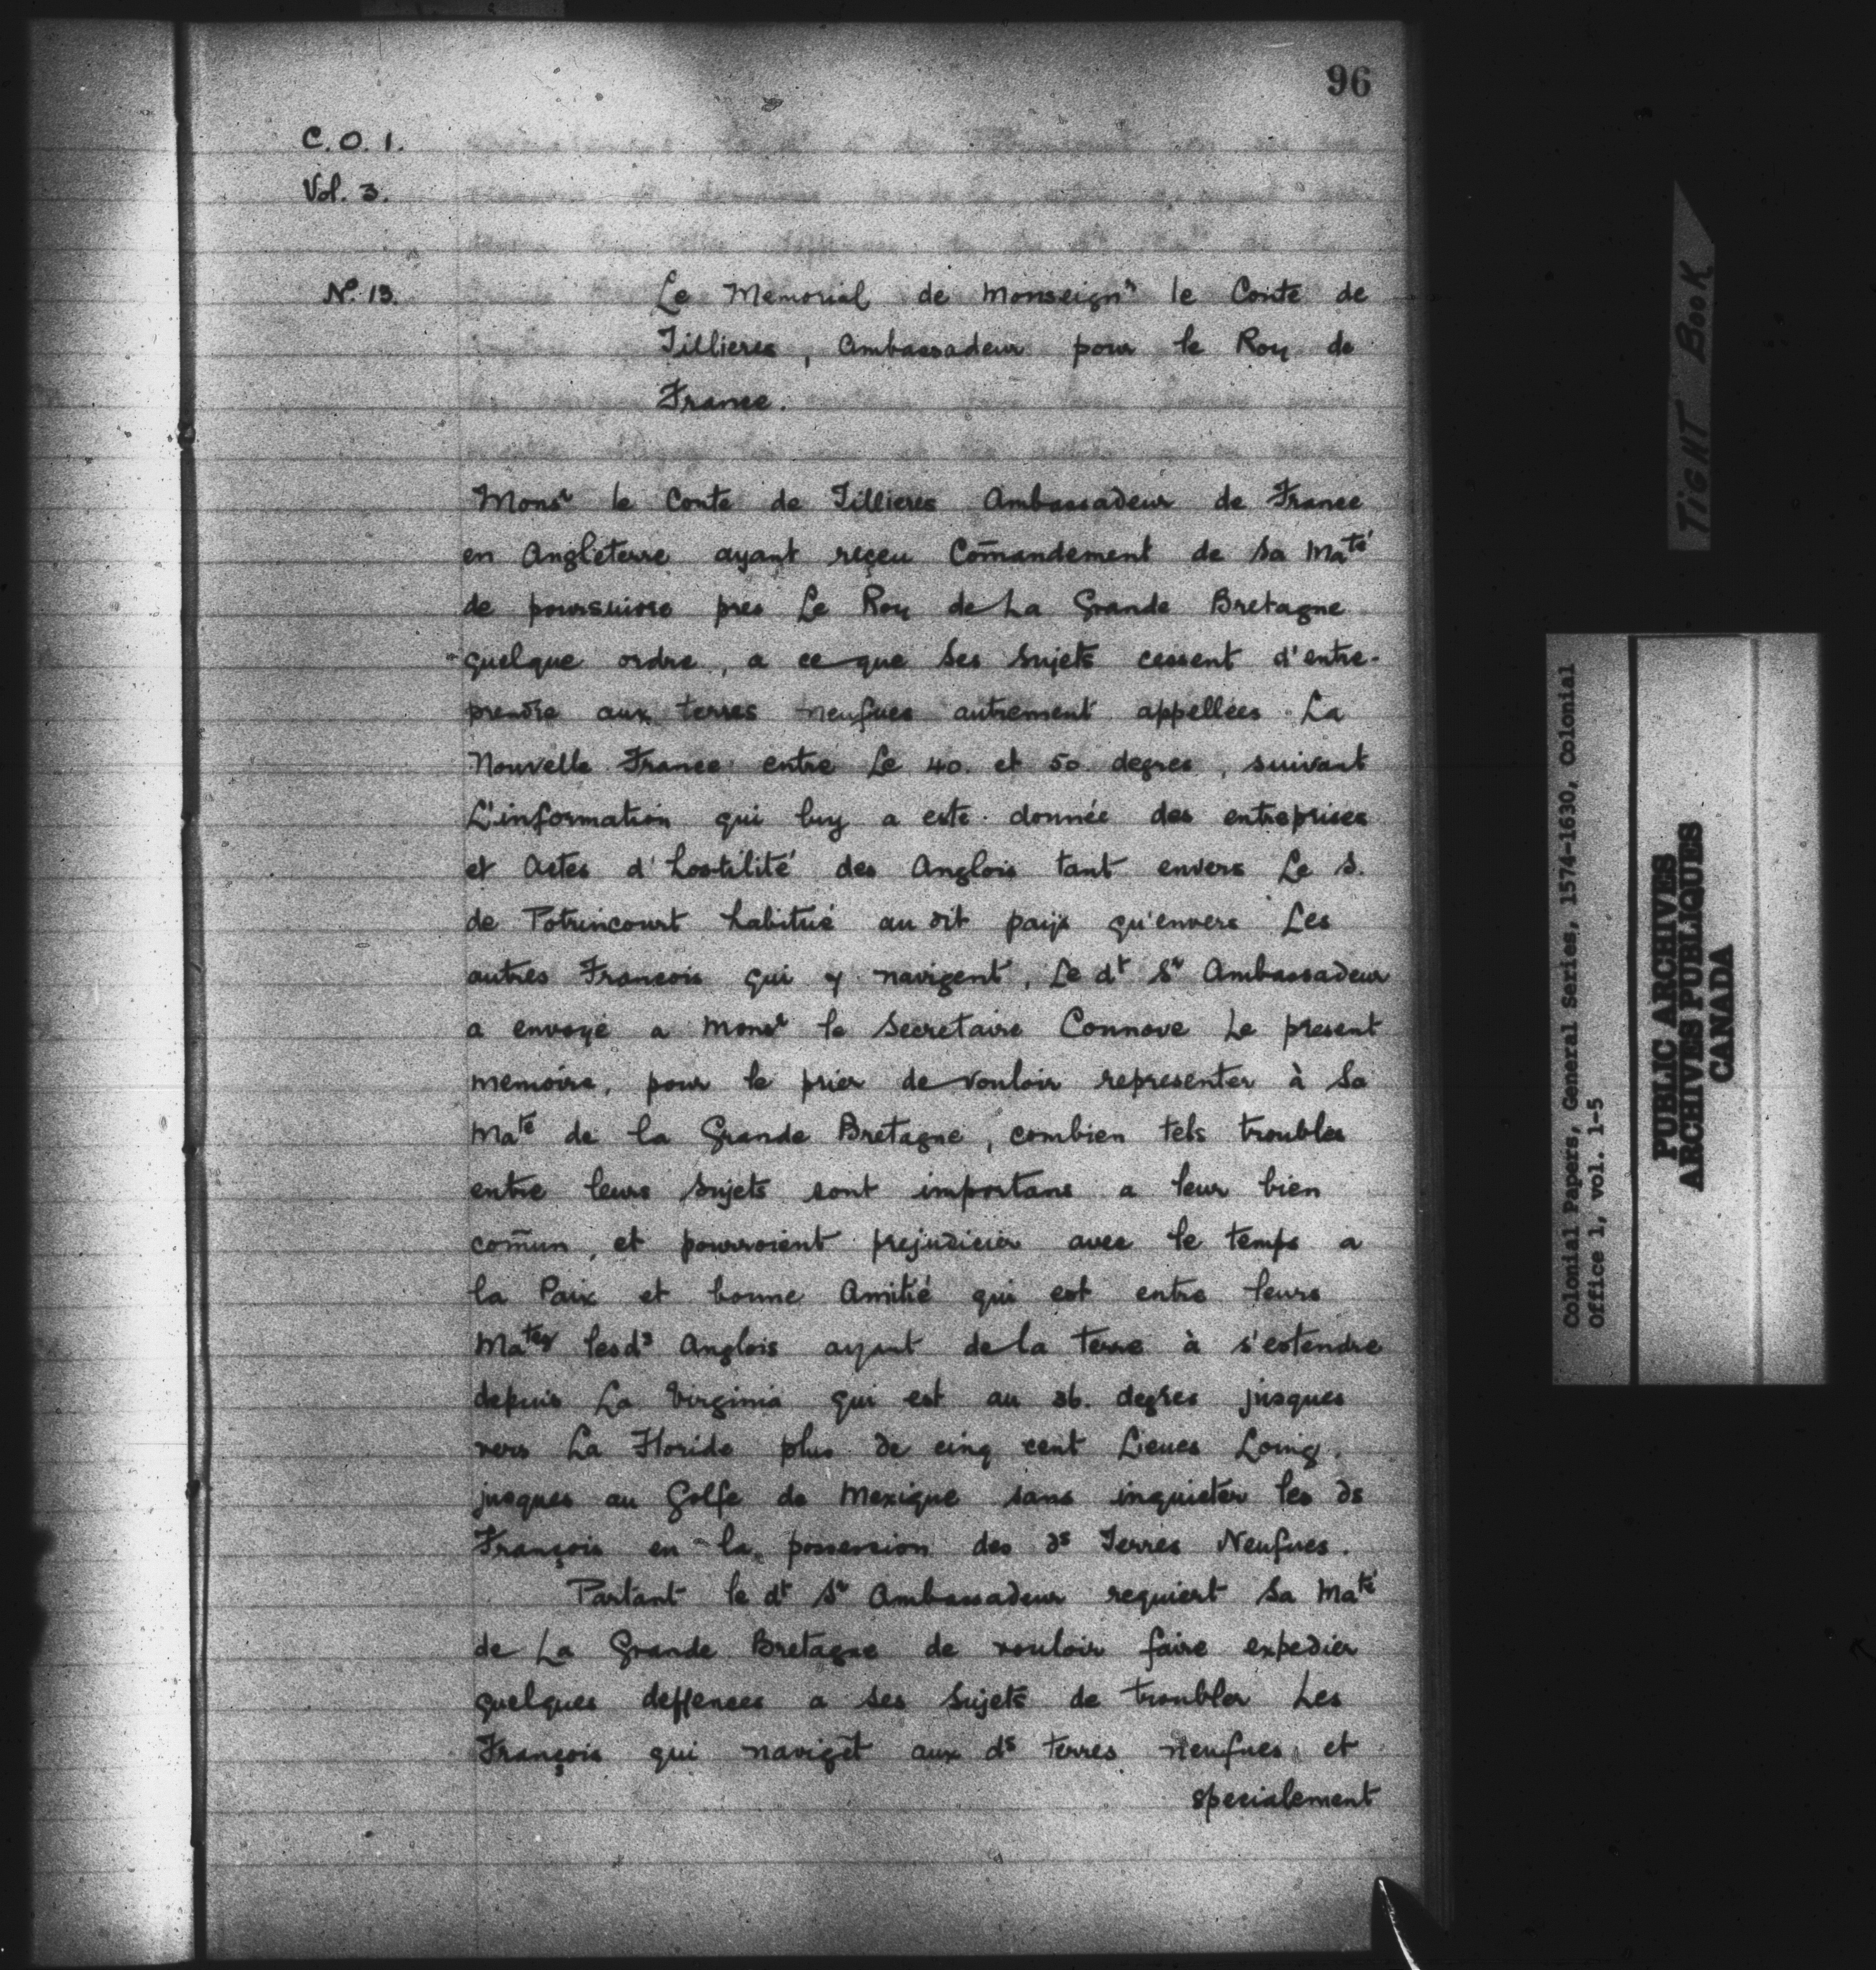 96
C. O. 1.
Vol. 3.
Nº. 13.
Le Memorial de Monseignʳ le Conte de
Tillieres, Ambassadeur pour le Roy de
France.
Monsʳ le Conte de Tillieres Ambassadeur de France
en Angleterre ayant reçeu Com̃andement de Sa Maᵗé
de poursuivre pres Le Roy de La Grande Bretagne
quelque ordre, a ce que Ses Sujets cessent d'entre-
prendre aux terres neufues autrement appellées La
Nouvelle France entre Le 40. et 50. degres, suivant
L'information qui luy a esté donnée des entreprises
et Actes d'hostilité des Anglois tant envers Le S.
de Potrincourt habitué au dit païs qu'envers Les
autres Francois qui y navigent, Le dᵗ Sʳ Ambassadeur
a envoyé a Monsʳ le Secretaire Connove Le present
memoire, pour le prier de vouloir representer à Sa
Maᵗé de la Grande Bretagne, combien tels troubles
entre leurs Sujets sont importans a leur bien
com̃un, et pourroient prejudicier avec le temps a
la Paix et bonne Amitié qui est entre leurs
Maᵗᵉˢ lesdˢ Anglois ayant de la terre à s'estendre
depuis La Virginia qui est au 36. degres jusques
vers La Floride plus de cinq cent Lieues Loing,
jusques au Golfe de Mexique sans inquieter les ds
François en la possession des dˢ Terres Neufues.
Partant le dᵗ Sʳ Ambassadeur requiert Sa Maᵗé
de La Grande Bretagne de vouloir faire expedier
quelques deffences a ses Sujets de troubler Les
François qui naviget aux dˢ terres neufues et
specialement
TIGHT BOOK
Colonial Papers, General Series, 1574-1630, Colonial
Office 1, vol. 1-5
PUBLIC ARCHIVES
ARCHIVES PUBLIQUES
CANADA